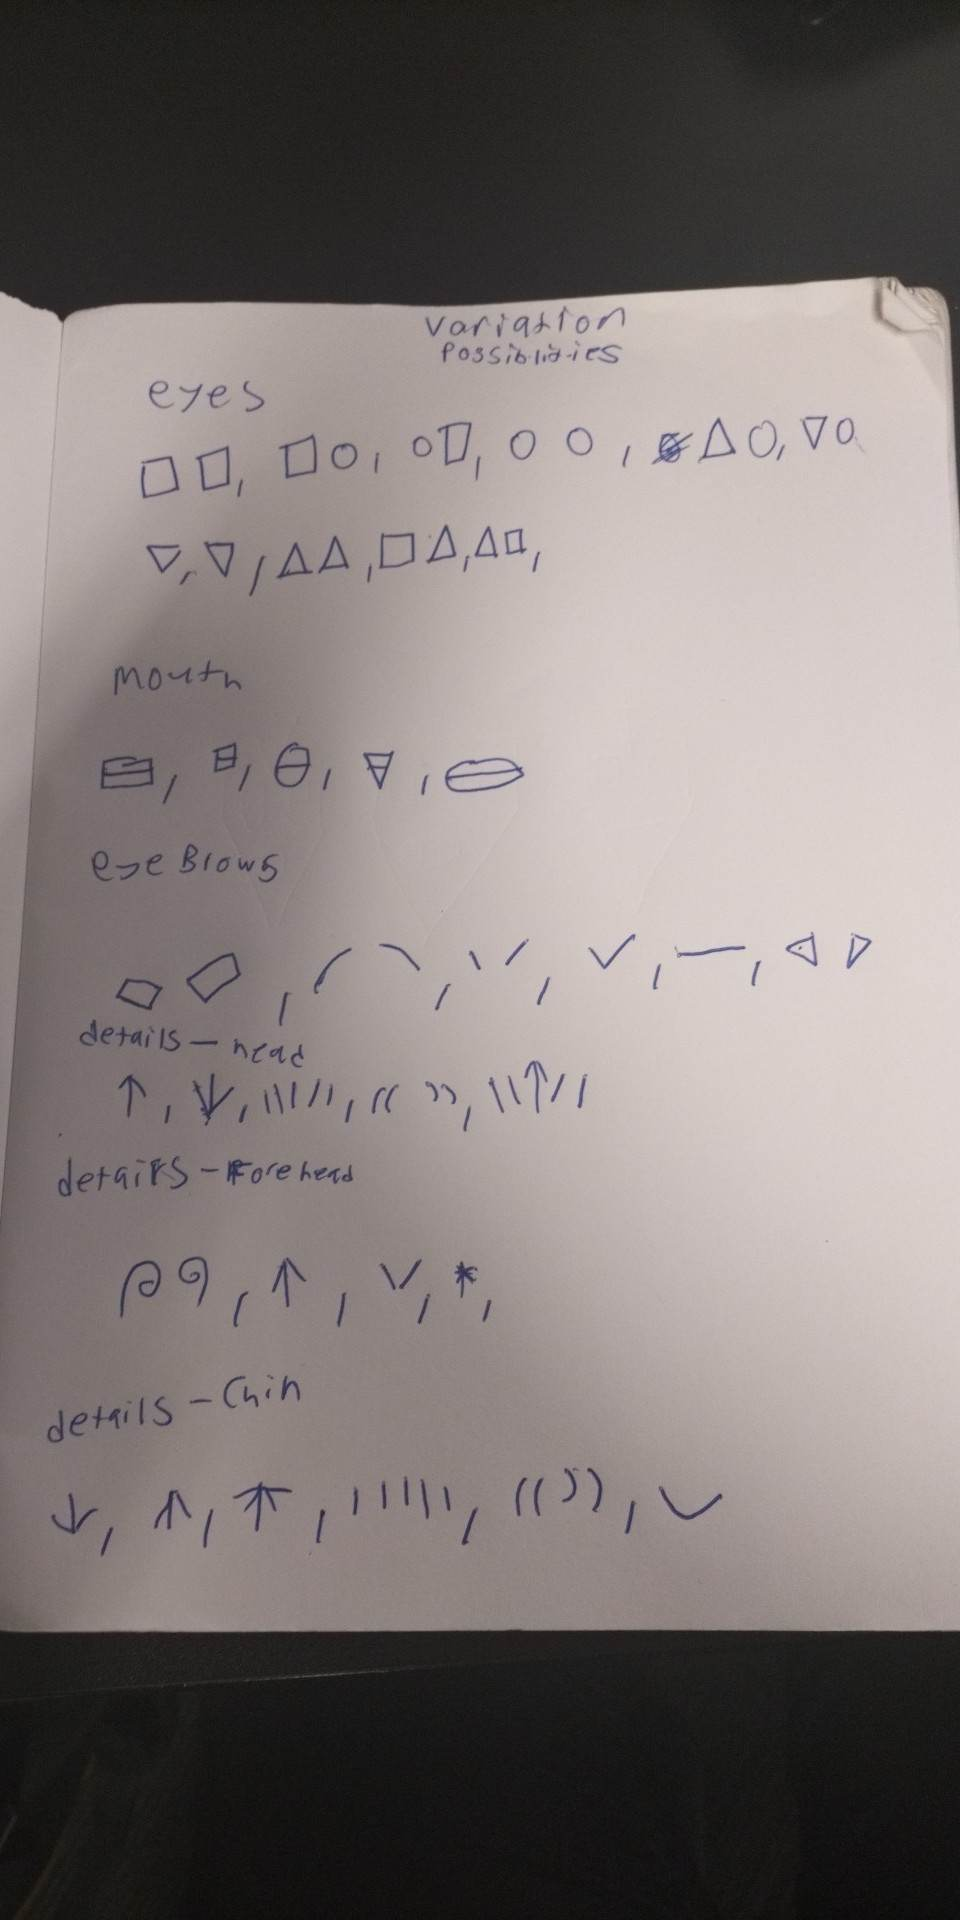 Variation
Possiblities
eyes
Mouth
eye Brows
details - head
details - Forehead
details - Chin